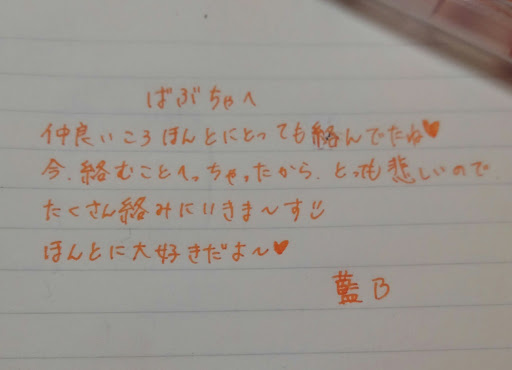 ばぶちゃへ
仲良いころほんとにとっても絡んでたね♥
今、絡むことへっちゃったから、とっても悲しいので
たくさん絡みにいきま〜す
ほんとに大好きだよ〜♥
藍B